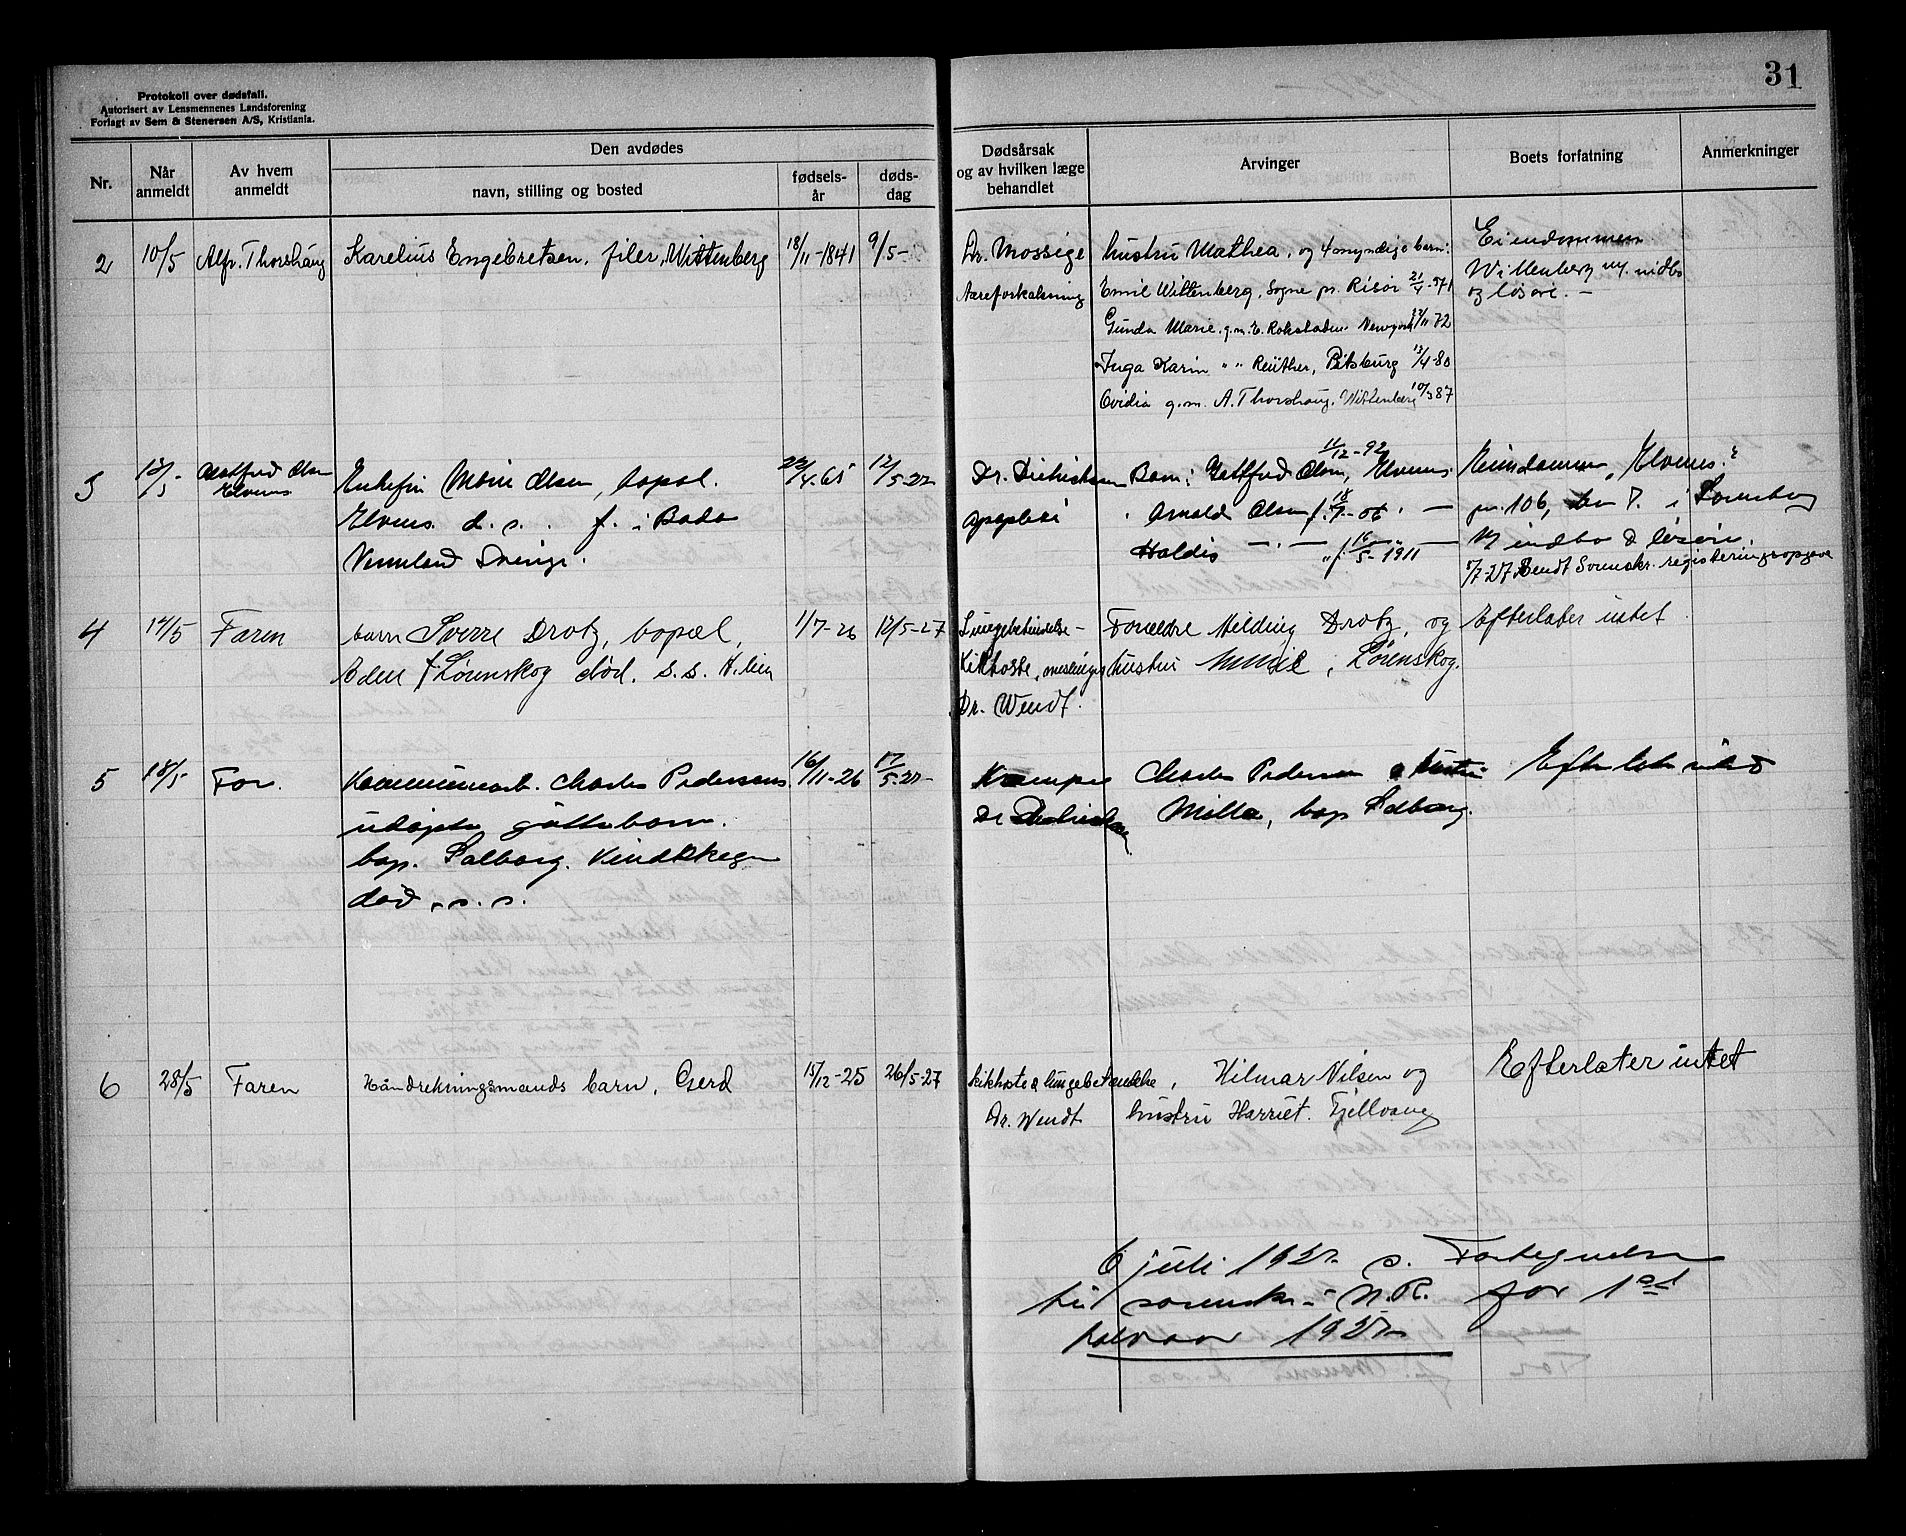 31
Protokoll over dødsfall.
Autorisert av Lensmennenes Landsforening
Forlagt av Sem & Stenersen A/S, Kristiania.
Nr.
Når anmeldt
Av hvem anmeldt
Den avdødes
navn, stilling og bosted
fødsels-år
døds-dag
Dødsårsak og av hvilken læge behandlet
Arvinger
Boets forfatning
Anmerkninger
2 10/5 Alfr. Thorshaug Karelius Engebretsen, filer, Wittenberg 18/11-1841 9/5-
Dr. Mossige
Aareforkalkning
hustru Mathea, og 4 myndige barn:
Emil Wittenberg, Sogne pr. Risør 21/4-
Gunda Marie, g.m. E. Rokstaden Newyork /11 72
Inga Karin " " Reüther, Pitsburg 13/4-80
Ovidia g.m. A. Thorshaug, Wittenberg 10/3 87
Eiendommen
Wittenberg m. indbo
og løsøre. -
3 13/5- Gottfred Olsen
Elvenes
Enkefru Marie Olsen, bopæl.
Elvenes d. s. f. i Bodø
Vermland Sverige.
22/4-65 12/5-27
Dr. Didrichsen
apoplexi
11/12-92
Barn: Gottfred Olsen, Elvenes
" Arnold Olsen f. 18/7-06 " -
Haldis - " - " f. 16/5-1911 -
Eiendommen "Elvenes"
gn. 106, bn 7. i Lørenskog
m/ indbo & løsøre.
5/7-27 sendt Sorenskr. registreringsopgave
4 14/5 Faren
barn Sverre Drotz, bopæl,
Lørenskog død. s. s.
1/7-26 12/5-27
Lungebetendelse -
Kikhoste, meslinger
Dr. Wendt.
Forældre Hilding Drotz, og
hustru , Lørenskog.
Efterlater intet
5 18/5- Far.
Kommunearb. Charles Pedersens
udøpte guttebarn.
bap. Solborg.
død, s. s.
16/11-26 17/5-27-
Krampe
Dr Didrichsen
Charles Pedersen & hustru
Milla, bop Solborg.
Efterlater intet
6 28/5 Faren Håndrekningsmands barn, Gerd 15/12-25 26/5-27
kikhoste & lungebetændelse,
Dr. Wendt
Hilmar Nilsen og
hustru Harriet. Fjellvang
Efterlater intet
6 juli 1927 s. Fortegnelse
til sorenskr. i N.R. for 1st
halvaar 1927